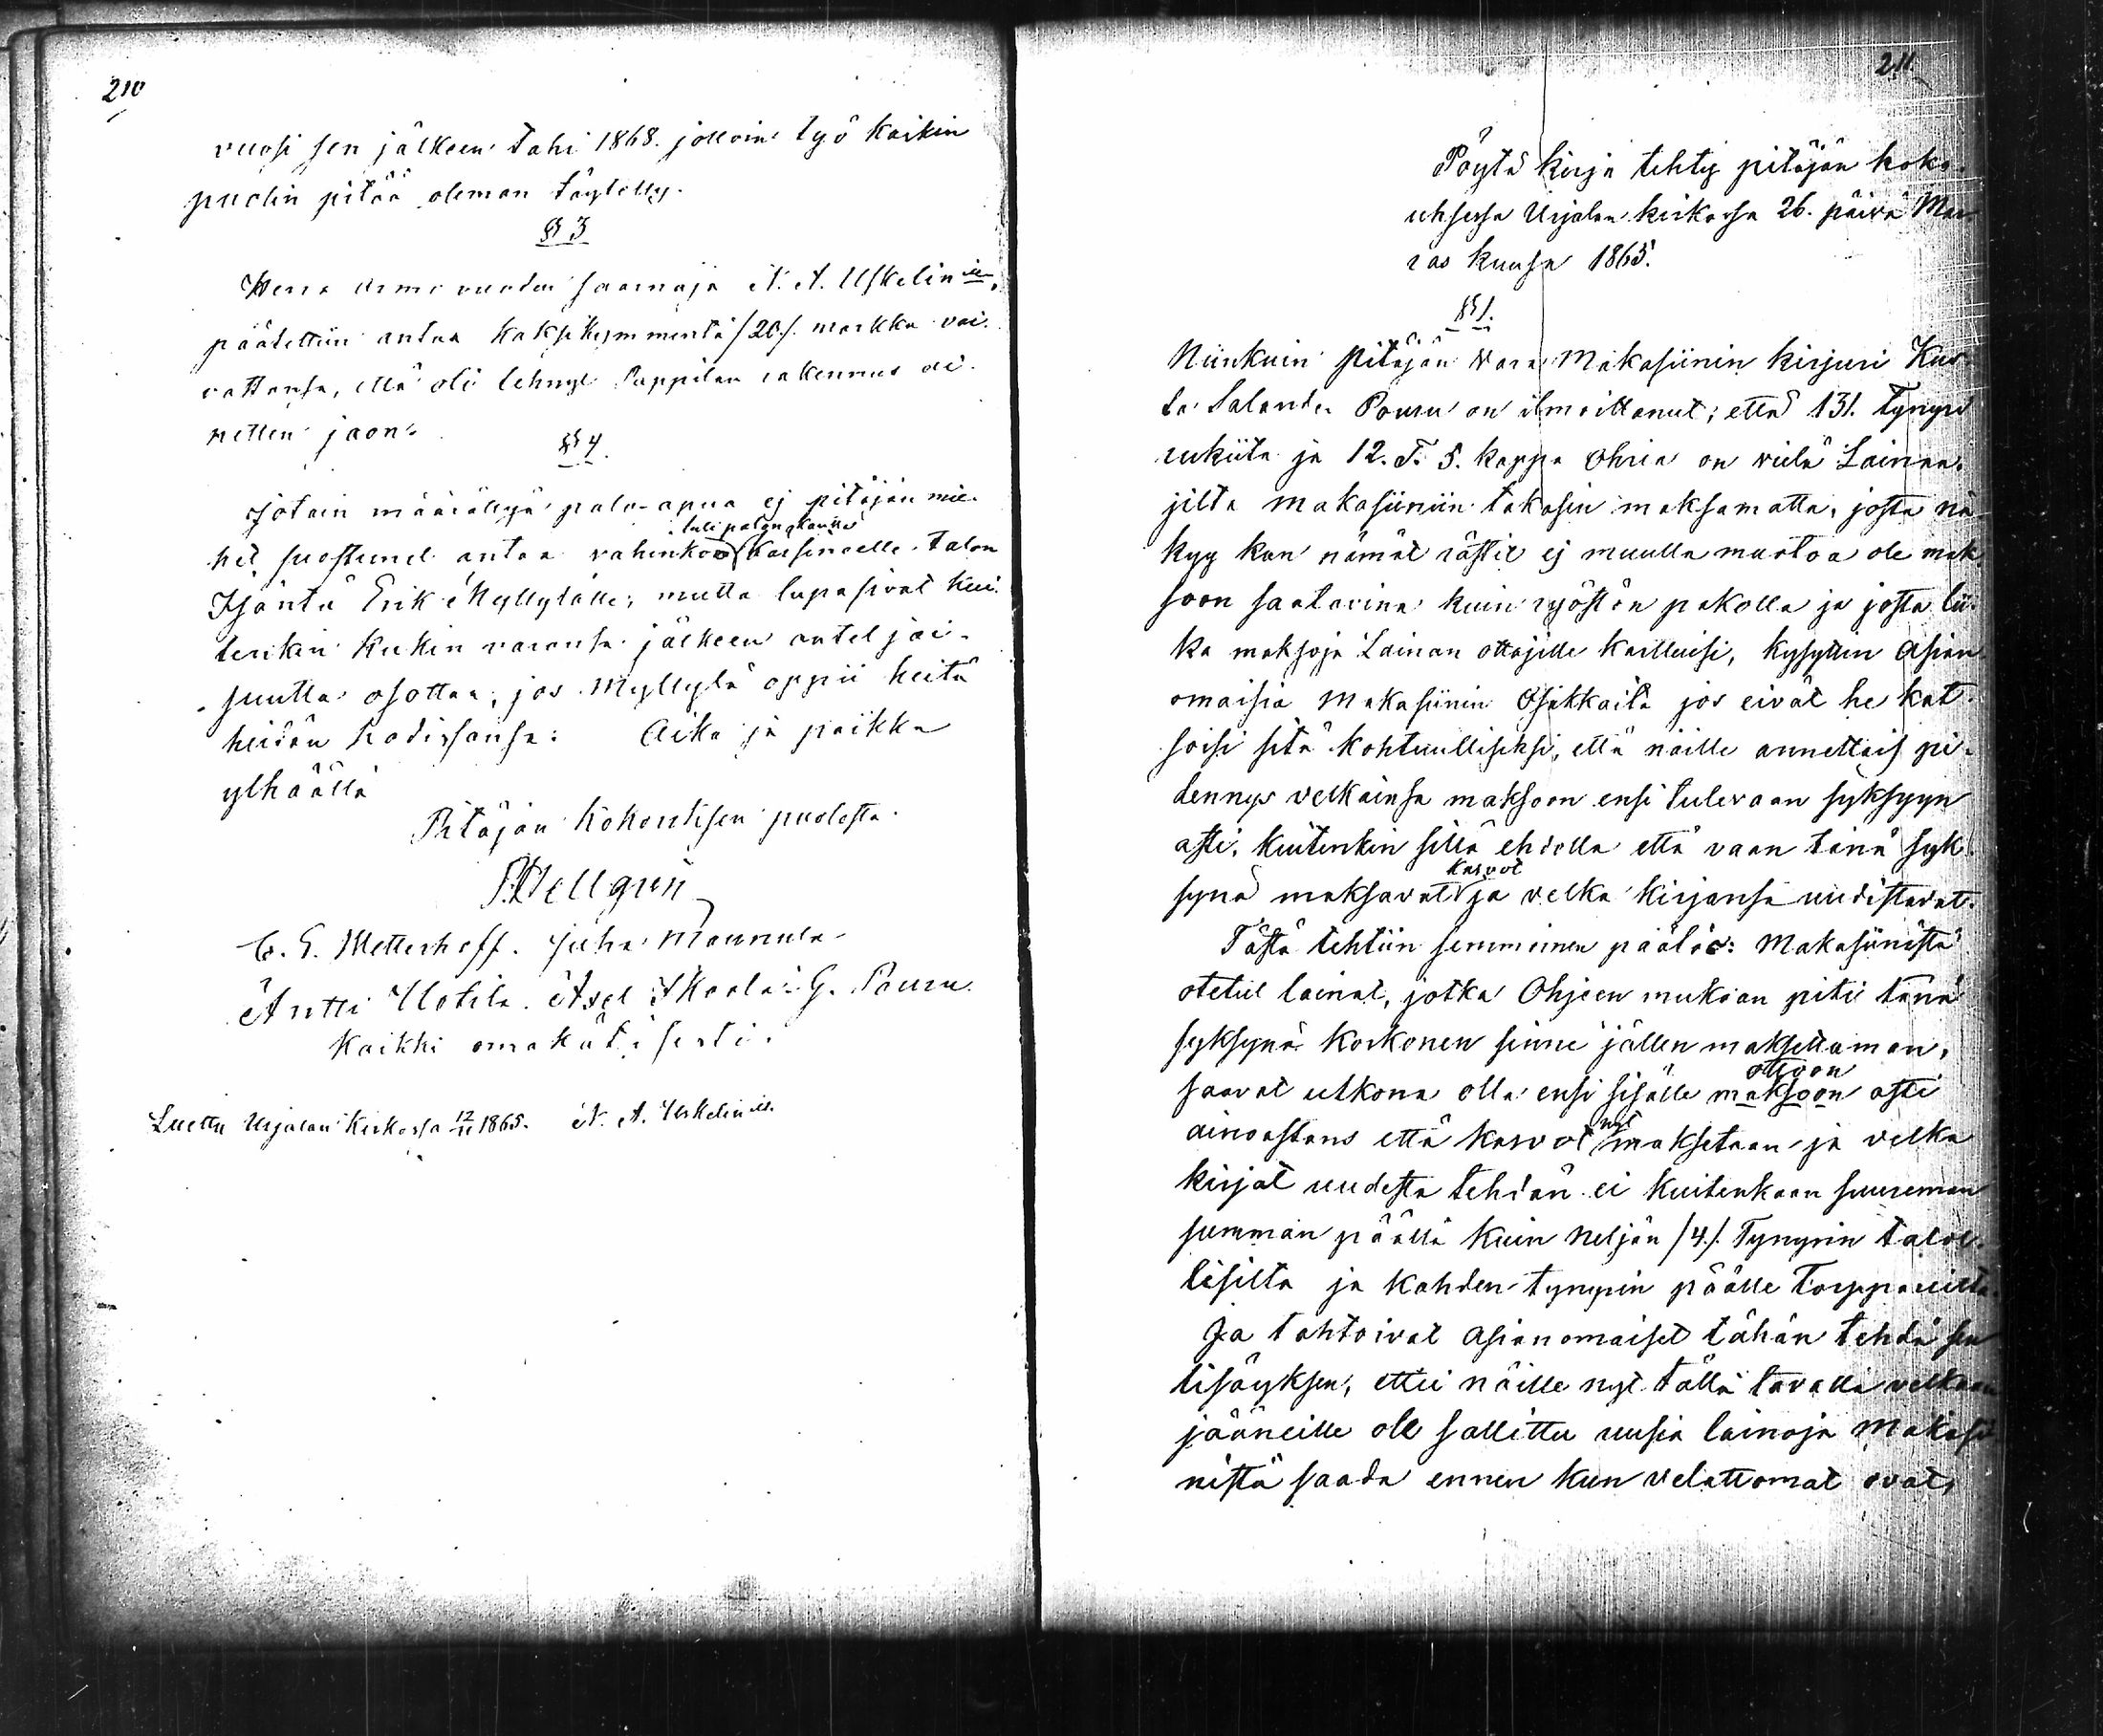 210
vuosi sen jälkeen tahi 1868. jolloin työ kaikin
puolin pitää oleman täytetty.
§ 3
Herra Armo vuoden saarnaja N. A. Uskelin ille,
päätettiin antaa kaksikymmentä /20./. markka vai-
vattansa, että oli tehnyt Pappilan rakennus ai-
netten jaon.
§ 4.
Jotain määrättyä palo-apua ej pitäjän mie-
tuli palon kautta
het suostunet antaa vahinkoo kärsineelle talon
Isäntä Erik Myllylälle; mutta lupasivat kui-
tenkin kukin varansa jälkeen anteljai-
suutta osottaa, jos Myllylä oppii heitä
heidän kodissansa: Aika ja paikka
ylhäällä
Pitäjän Kokouksen puolesta.
F. Hellgren
C. G. Metterhoff. Juha Mannula
Antti Uotila. Axel Skoola. G. Pouru
Kaikki omakätisesti.
Luettu Urjalan Kirkossa 12/11 1865. N. A. Uskelin ill.
211
Pöytä kirja tehty pitäjän koko-
uksessa Urjalan kirkossa 26. päivä Mar-
ras kuusa 1865.
§ 1.
Niinkuin Pitäjän Vara Makasiinin kirjuri Kus-
ta Salander Pouru on ilmoittanut; että 131. Tynyri
rukiita ja 12. T. 5. kappa Ohria on vielä Lainaa-
jilta makasiiniin takasin maksamatta, josta nä-
kyy kan nämät rästit ej muulla muotoa ole mak-
soon saatavina kuin ryöstön pakolla ja josta lii-
ka maksoja Lainan ottajille karttuisi, kysyttiin Asian
omaisia Makasiinin Osakkaita jos eivät he kat-
soisi sitä kohtuulliseksi, että näille annettais pi-
dennys velkainsa maksoon ensi tulevaan syksyyn
asti. kuitenkin sillä ehdolla että vaan tänä syk-
kasvot
synä maksavat ja velka kirjansa uudistavat.
Tästä tehtiin semmoinen päätös: Makasiinista
otetut lainat, jotka Ohjeen mukaan piti tänä
syksynä korkonen sinne jällen maksettaman,
ottoon
saavat utkona olla ensi sisälle maksoon asti
nyt
ainoastans että kasvot maksetaan ja velka
kirjat uudesta tehdän ei kuitenkaan suureman
summan päälle kuin neljän /4./. Tynyrin talol-
lisilta ja kahden tynyrin päälle Torppareilta.
Ja tahtoivat asianomaiset tähän tehdä sen
lisäyksen, ettei näille nyt tällä tavalla velkaan
jääneille ole sallittu uusia lainoja Makasi-
nistä saada ennen kun velattomat ovat,